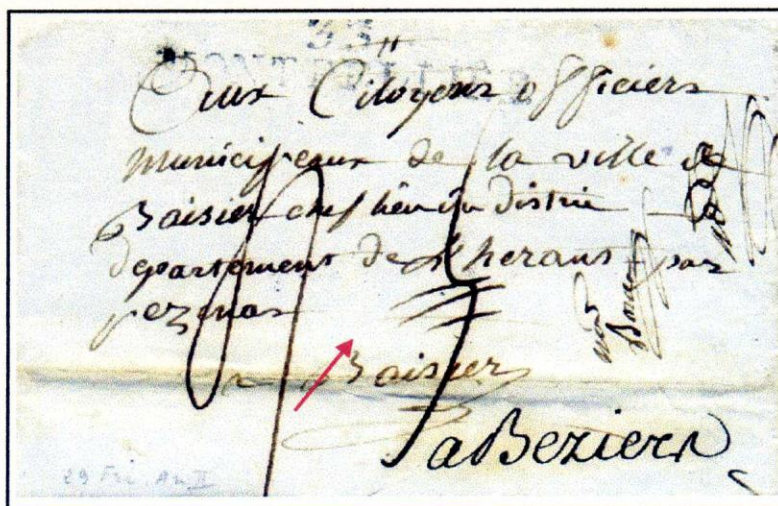 33
MONTPELLIER
Aux Citoyens officiers
municipeaux de la ville de
Baisier chef lieu du distrie
departement de l'heraut par
pezenas
a Baisier
a Beziers
29 Fri. An II